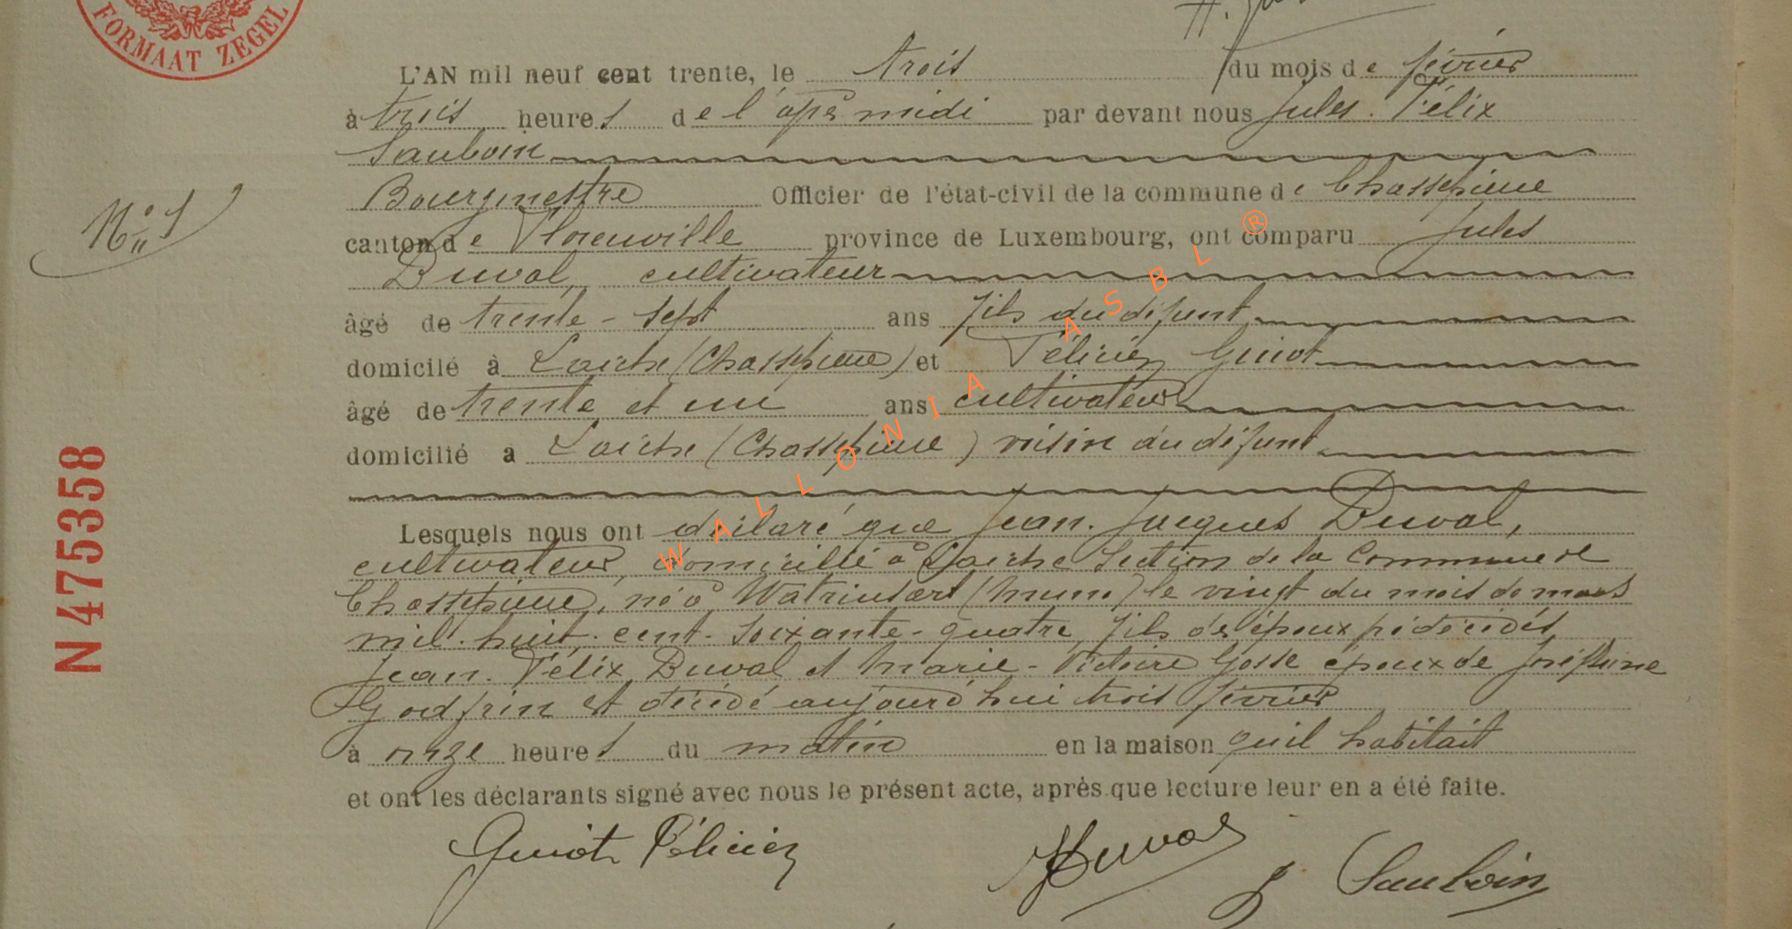 FORMAAT ZEGEL
L'AN mil neuf cent trente, le trois du mois de février
à trois heures de l'après midi par devant nous Jules. Félix
Sauboin
Bourgmestre Officier de l'état-civil de la commune de Chassepierre
N° 1
canton de Florenville province de Luxembourg, ont comparu Jules
Duval, cultivateur
âgé de trente-sept ans fils du défunt
domicilé à Laiche (Chassepierre) et Félicien Guiot
âgé de trente et un ans cultivateur
domicilié a Laiche (Chassepierre) voisin du défunt
Lesquels nous ont déclaré que Jean. Jacques Duval,
cultivateur, domicilié à Laiche section de la Commune de
Chassepierre, né à Watrinsart (Muno) le vingt du mois de mars
mil. huit. cent. soixante-quatre, fils des époux prédécédés,
Jean. Félix Duval et Marie-Victoire Gosse époux de Joséphine
Godfrin est décédé aujourd'hui trois février
à onze heures du matin en la maison qu'il habitait
et ont les déclarants signé avec nous le présent acte, après que lecture leur en a été faite.
Guiot Félicien JDuval J Sauboin
N 475358
WALLONIA ASBL ®